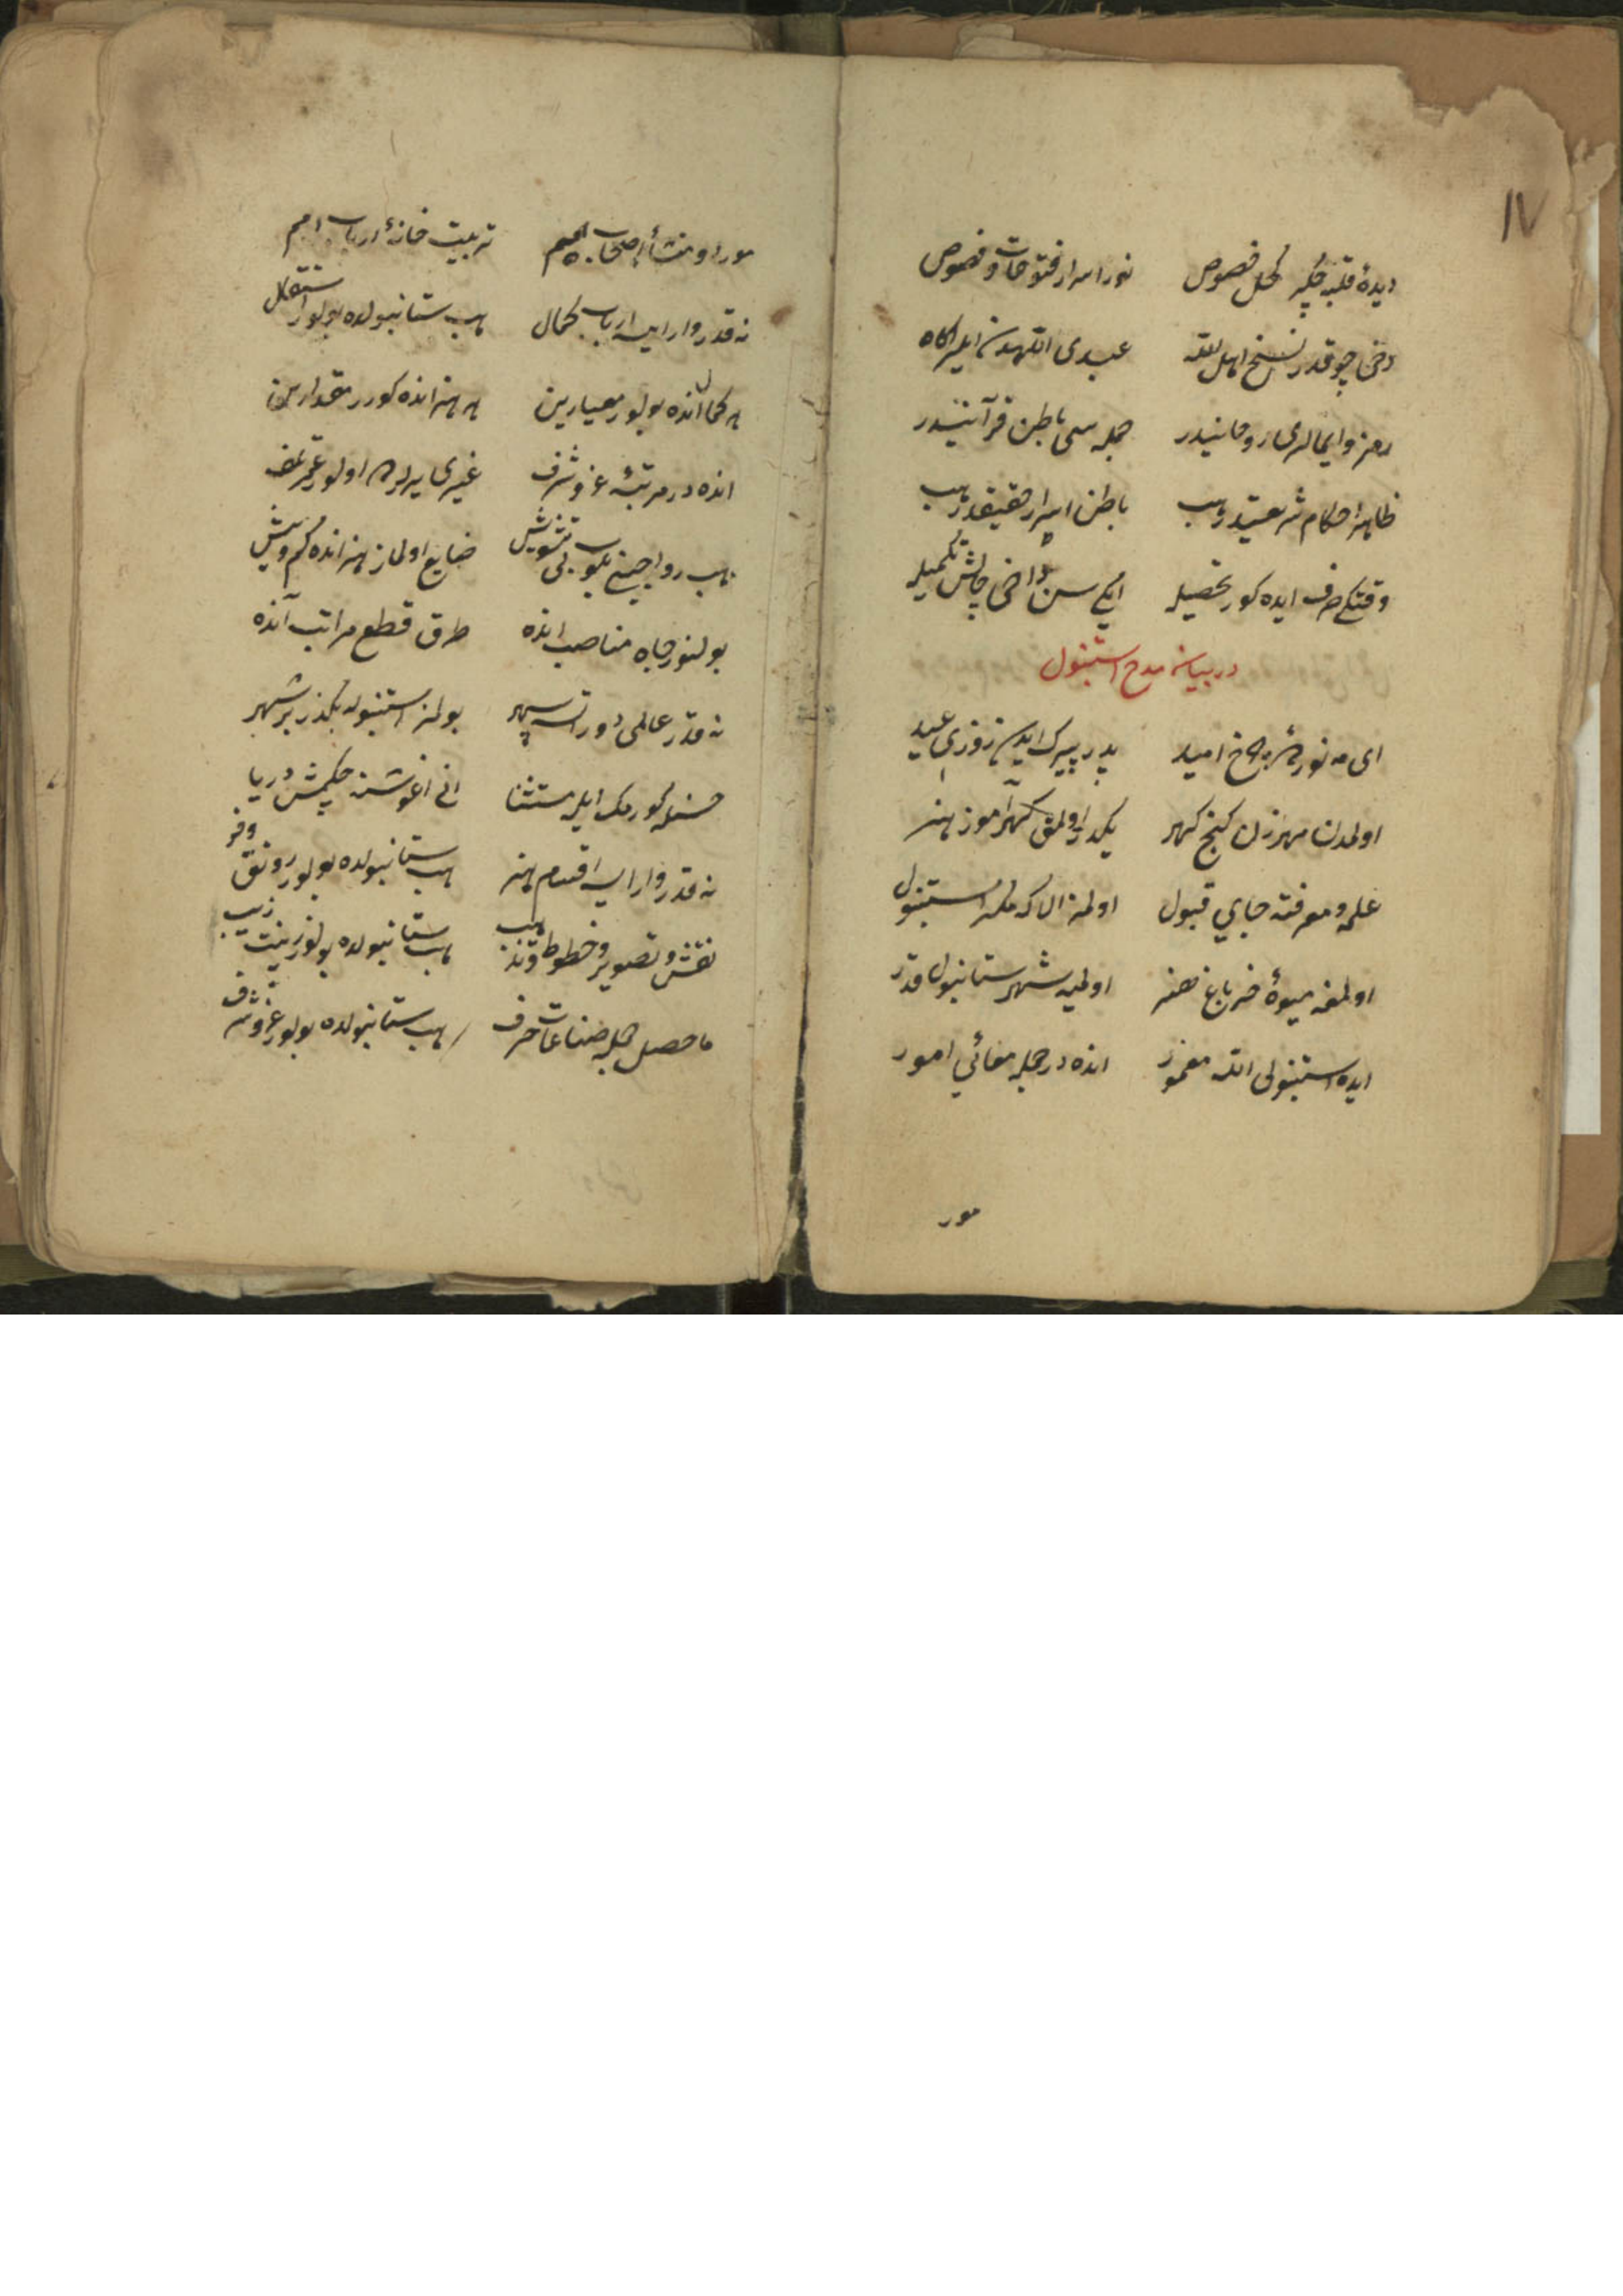 ١٧
ديدۀ قلبه چكر كحل فصوص نور اسرار فتوحات و فصوص
دخى چوقدر نسخ اهل الله عبدى اللهدن ايلر اكاه
رمز وايمالرى روحانيدر جمله سى باطن قرآنيدر
ظاهر احكام شريعتدر هب باطن اسرار حقيقتدر هب
وقتكى صرف ايده كور تحصيله ايكى سن داخى چالش تكميله
در بيان مدح استنبول
اى مه نور ده چرخ اميد پدر پيرك ايدن روزى عيد
اولمدن مهرزن كنج كهر يكدر اولمق كهر آموز هنر
علم و معرفته جاي قبول اولمز الا كه مكر استنبول
اولمغه ميوۀ خور باغ هنر اولميه شهر ستانبول قدر
ايده استنبولى الله معمور انده در جمله معالئ امور
مور
مورد و منشأ اصحاب همم تربيت خانۀ ارباب امم
نه قدر وار ايسه ارباب كمال هب ستانبولده بولور استقلال
هر كمال انده بولور معيارين هر هنر انده كورر مقدارين
انده در مرتبۀ عز و شرف غيرى يرلرده اولور عمر تلف
هب رواجين بلور بى تشويش ضايع اولماز هنر انده كم و بيش
بولنور جاه مناصب انده طرق قطع مراتب آنده
نه قدر عالمى دور اتسه سپهر بولمز استنبوله بكذر بر شهر
حسنله كورمك ايله مستثنا انى اغوشنه چكمش دريا
نه قدر وار ايسه اقسام هنر هب ستانبولده بولور رونق و فر
نقش و تصوير و خطوط و تذهيب هب ستانبولده بولور زينت و زيب
ما حصل جمله صناعات حرف هب ستانبولده بولور عز و شرف